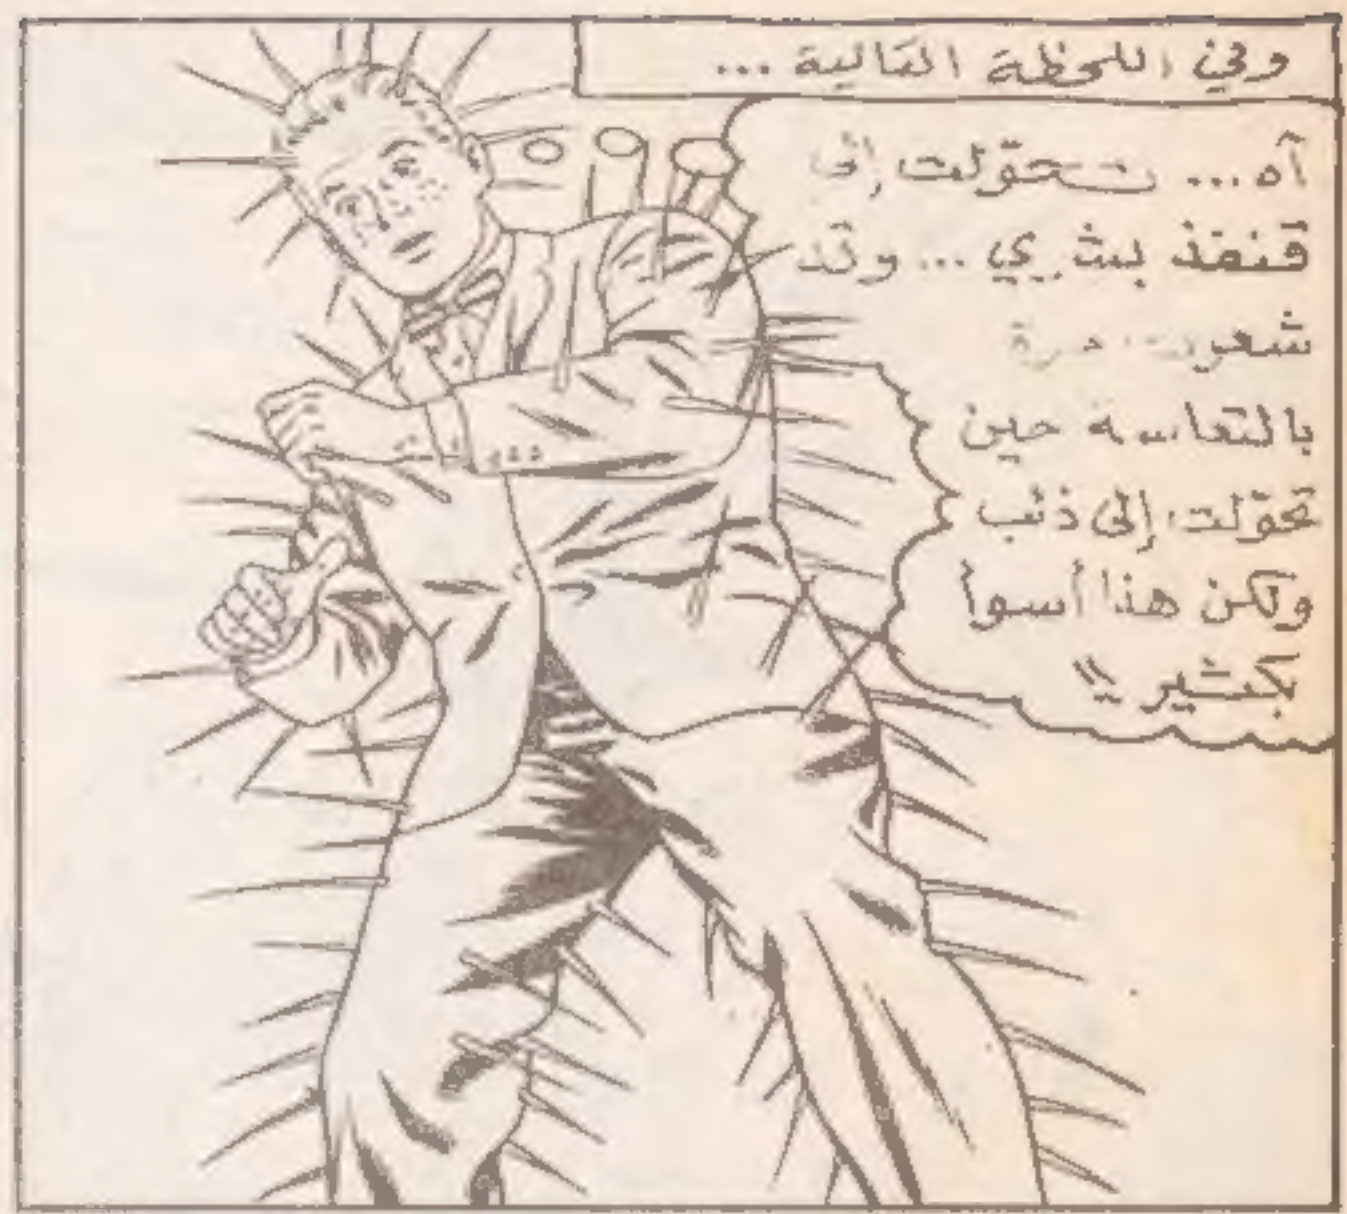 وفي اللحظة التالية ...
آه ... تحوّلت إلى
قنفذ بشري ... وقد
شعرت مرة
بالتعاسة حين
تحوّلت إلى ذئب
ولكن هذا أسوأ
بكثير !!